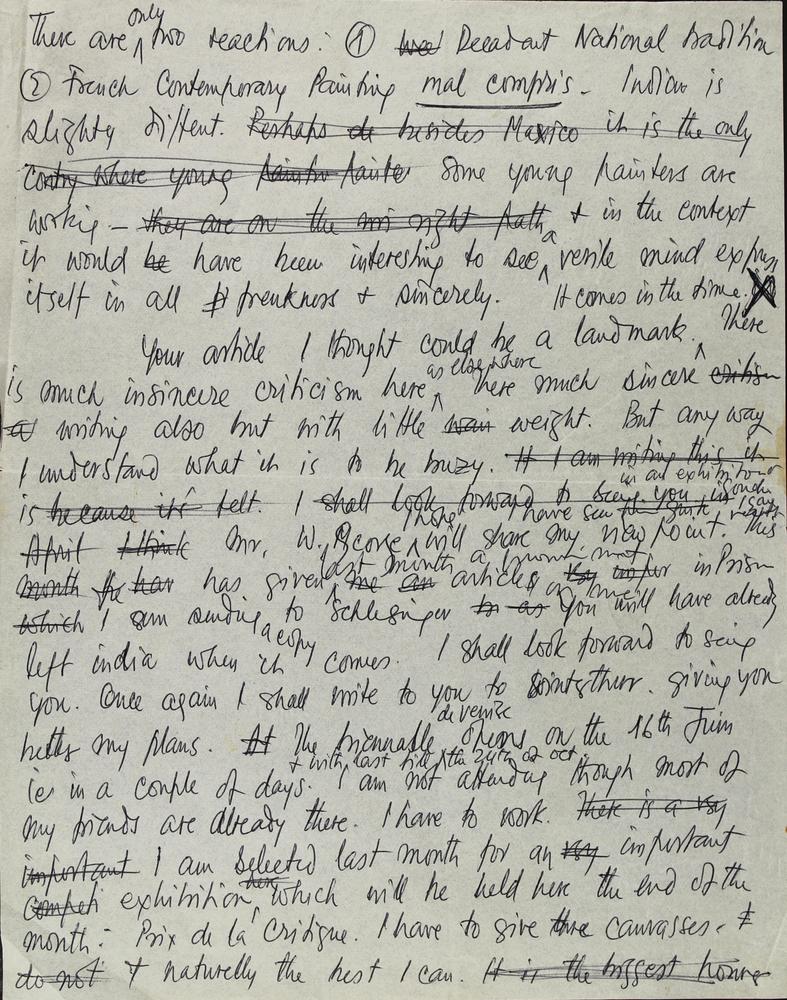 There are only two reactions: ① Decadent National tradition
② French Contemporary Painting mal compris. Indian is
slighty diffent. Perhaps de besides Maxico it is the only
contry where young painter painter some young painters are
workig - they are on the right path & in the context
it would be have been interesting to see a verile mind express
itself in all frenkness & sincerely. It comes in the time.
Your article I thought could be a landmark. There
is much insincere criticism here as elsewhere there much sincere critism
writing also but with little weight. But any way
I understand what it is to be buzy. If I am writing this it
is because it's felt. I shall look forward to seeing you in
April I think Mr. W. George I hope will share my view point. This
month he has given last month a articles in Prism
which I am sending a copy to Schlesinger you will have already
left india when it comes. I shall look forward to seing
you. Once again I shall write to you to giving you
better my plans. At The biennable de venise opens on the 16th Juin
ie in a couple of days. & with last till the 24th of oct. I am not attending though most of
my friends are already there. I have to work. There is a vry
important I am selected last month for an vry important
competi exhibition here which will be held here the end of the
month: Prix de la Critique. I have to give three canvasses.
do not & naturelly the best I can. It is the biggest honour